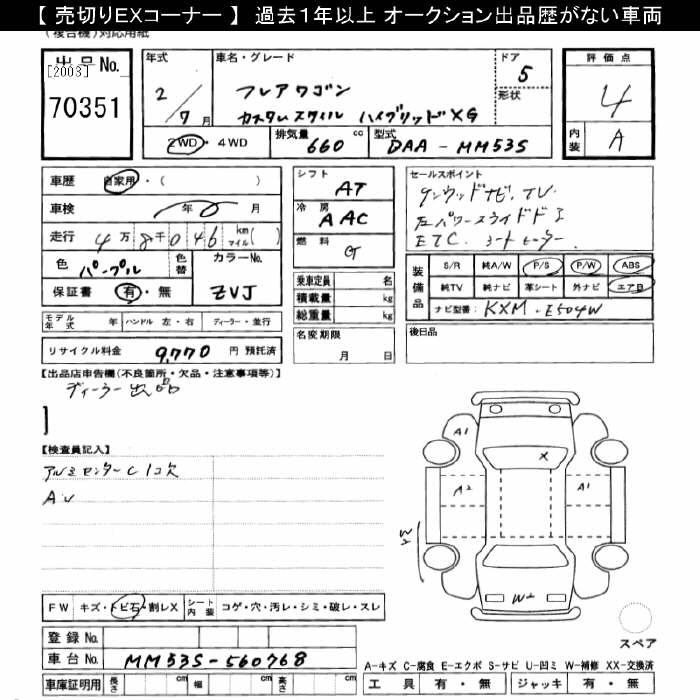 【 売切りEXコーナー 】 過去１年以上 オークション出品歴がない車両
(複合機)対応用紙
出品No.
[2003]
70351
年式
2/7月
車名・グレード
フレアワゴン
カスタムスタイル ハイブリッドXG
ドア
5
形状
評価点
4
内装
A
2WD・4WD
排気量 660 cc
型式 DAA-MM53S
車歴 自家用・( )
車検 年 月
走行 4万8千046 km マイル( )
色 パープル
色替
カラーNo. ZVJ
保証書 有・無
シフト AT
冷房 AAC
燃料 G
セールスポイント
ケンウッドナビ、TV
左パワースライドドア
ETC. シートヒーター
装備品
S/R 純A/W P/S P/W ABS
純TV 純ナビ 革シート 外ナビ エアB
ナビ型番: KXM-E504W
乗車定員 名
積載量 kg
総重量 kg
モデル年式 年 ハンドル 左・右 ディーラー・並行
名変期限
月 日
後日品
リサイクル料金 9,770 円 預託済
【出品店申告欄(不良箇所・欠品・注意事項等)】
ディーラー出品
【検査員記入】
アルミセンターC 1コ欠
A1
X
A2
A1
W2
W2
FW キズ・トビ石・割レX シート内装 コゲ・穴・汚レ・シミ・破レ・スレ
登録No.
車台No. MM53S-560768
車庫証明用 長さ cm 幅 cm 高さ cm
スペア
A-キズ C-腐食 E-エクボ S-サビ U-凹ミ W-補修 XX-交換済
工具 有・無 ジャッキ 有・無